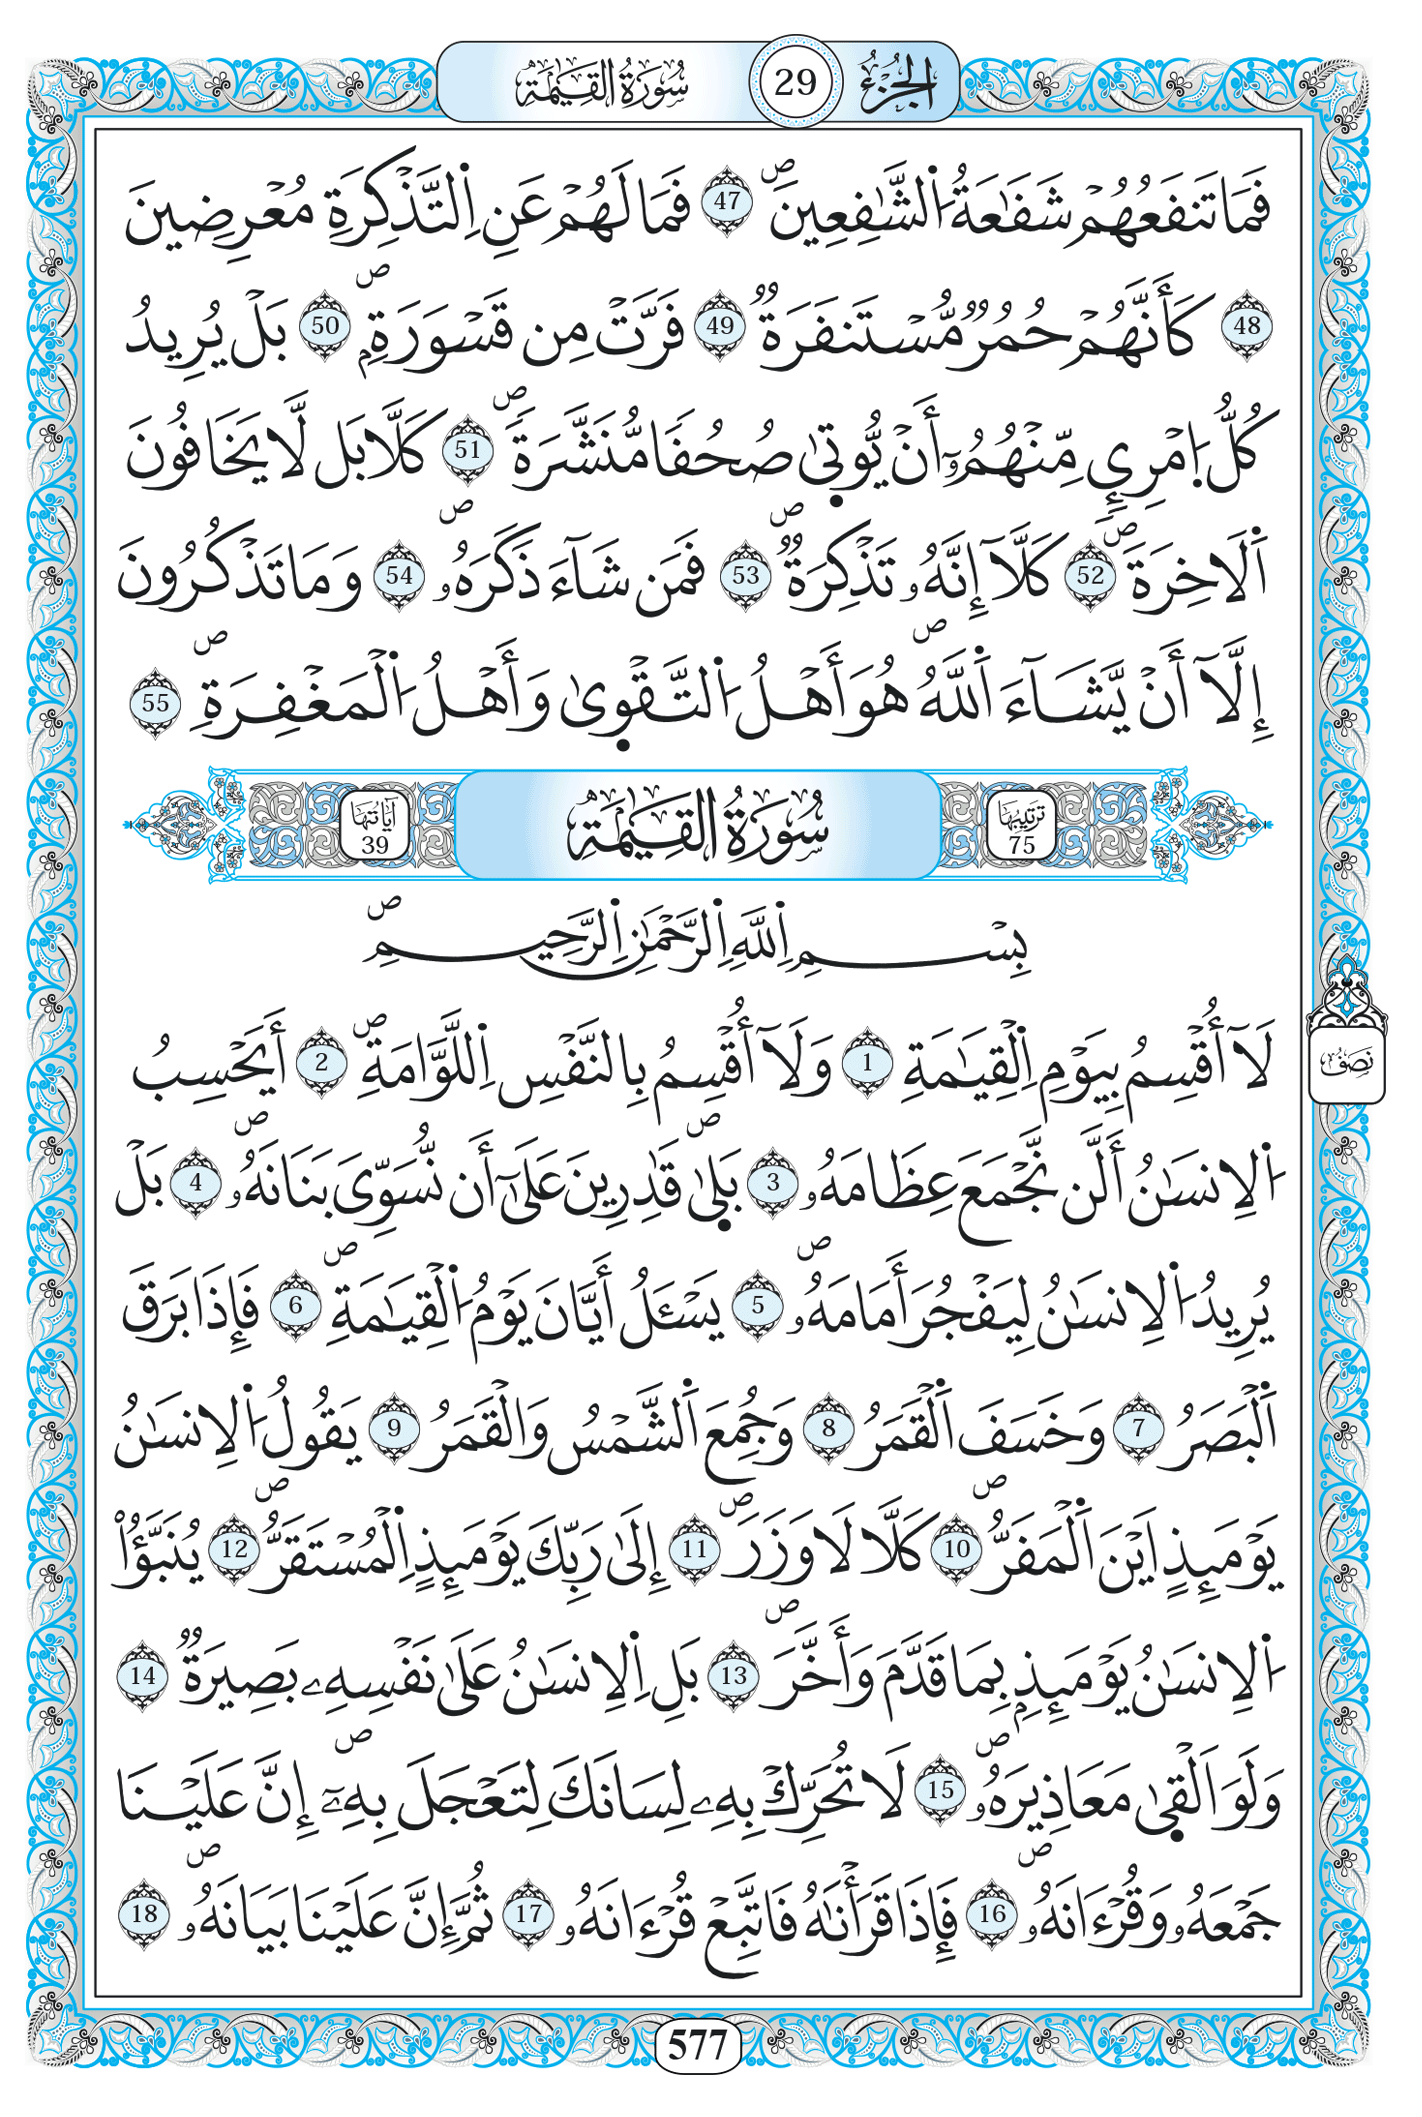 الجزء 29 سورة القيمة
فَمَا تَنفَعُهُمْ شَفَٰعَةُ اُ۬لشَّٰفِعِينَۖ 47 فَمَا لَهُمْ عَنِ اِ۬لتَّذْكِرَةِ مُعْرِضِينَ
48 كَأَنَّهُمْ حُمُرٞ مُّسْتَنفَرَةٞ 49 فَرَّتْ مِن قَسْوَرَةِۢۖ 50 بَلْ يُرِيدُ
كُلُّ اُ۪مْرِےٕٖ مِّنْهُمُۥٓ أَنْ يُّوتۭيٰ صُحُفاٗ مُّنَشَّرَةٗۖ 51 كَلَّا بَل لَّا يَخَافُونَ
اَ۬لَاخِرَةَۖ 52 كَلَّآ إِنَّهُۥ تَذْكِرَةٞۖ 53 فَمَن شَآءَ ذَكَرَهُۥۖ 54 وَمَا تَذْكُرُونَ
إِلَّآ أَنْ يَّشَآءَ اَ۬للَّهُۖ هُوَ أَهْلُ اُ۬لتَّقْوۭيٰ وَأَهْلُ اُ۬لْمَغْفِرَةِۖ 55
ترتيبها 75 سورة القيمة آياتها 39
بِسْمِ اِ۬للَّهِ اِ۬لرَّحْمَٰنِ اِ۬لرَّحِيمِۖ
لَآ أُقْسِمُ بِيَوْمِ اِ۬لْقِيَٰمَةِ 1 وَلَآ أُقْسِمُ بِالنَّفْسِ اِ۬للَّوَّامَةِۖ 2 أَيَحْسِبُ
نصف
اُ۬لِانسَٰنُ أَلَّن نَّجْمَعَ عِظَامَهُۥ 3 بَلۭيٰۖ قَٰدِرِينَ عَلَيٰٓ أَن نُّسَوِّيَ بَنَانَهُۥۖ 4 بَلْ
يُرِيدُ اُ۬لِانسَٰنُ لِيَفْجُرَ أَمَامَهُۥۖ 5 يَسْـَٔلُ أَيَّانَ يَوْمُ اُ۬لْقِيَٰمَةِۖ 6 فَإِذَا بَرَقَ
اَ۬لْبَصَرُ 7 وَخَسَفَ اَ۬لْقَمَرُ 8 وَجُمِعَ اَ۬لشَّمْسُ وَالْقَمَرُ 9 يَقُولُ اُ۬لِانسَٰنُ
يَوْمَئِذٍ اَيْنَ اَ۬لْمَفَرُّۖ 10 كَلَّا لَا وَزَرَۖ 11 إِلَيٰ رَبِّكَ يَوْمَئِذٍ اِ۬لْمُسْتَقَرُّۖ 12 يُنَبَّؤُاْ
اُ۬لِانسَٰنُ يَوْمَئِذِۢ بِمَا قَدَّمَ وَأَخَّرَۖ 13 بَلِ اِ۬لِانسَٰنُ عَلَيٰ نَفْسِهِۦ بَصِيرَةٞ 14
وَلَوَ اَلْقۭيٰ مَعَاذِيرَهُۥۖ 15 لَا تُحَرِّكْ بِهِۦ لِسَانَكَ لِتَعْجَلَ بِهِۦٓۖ إِنَّ عَلَيْنَا
جَمْعَهُۥ وَقُرْءَانَهُۥۖ 16 فَإِذَا قَرَأْنَٰهُ فَاتَّبِعْ قُرْءَانَهُۥ 17 ثُمَّ إِنَّ عَلَيْنَا بَيَانَهُۥۖ 18
577